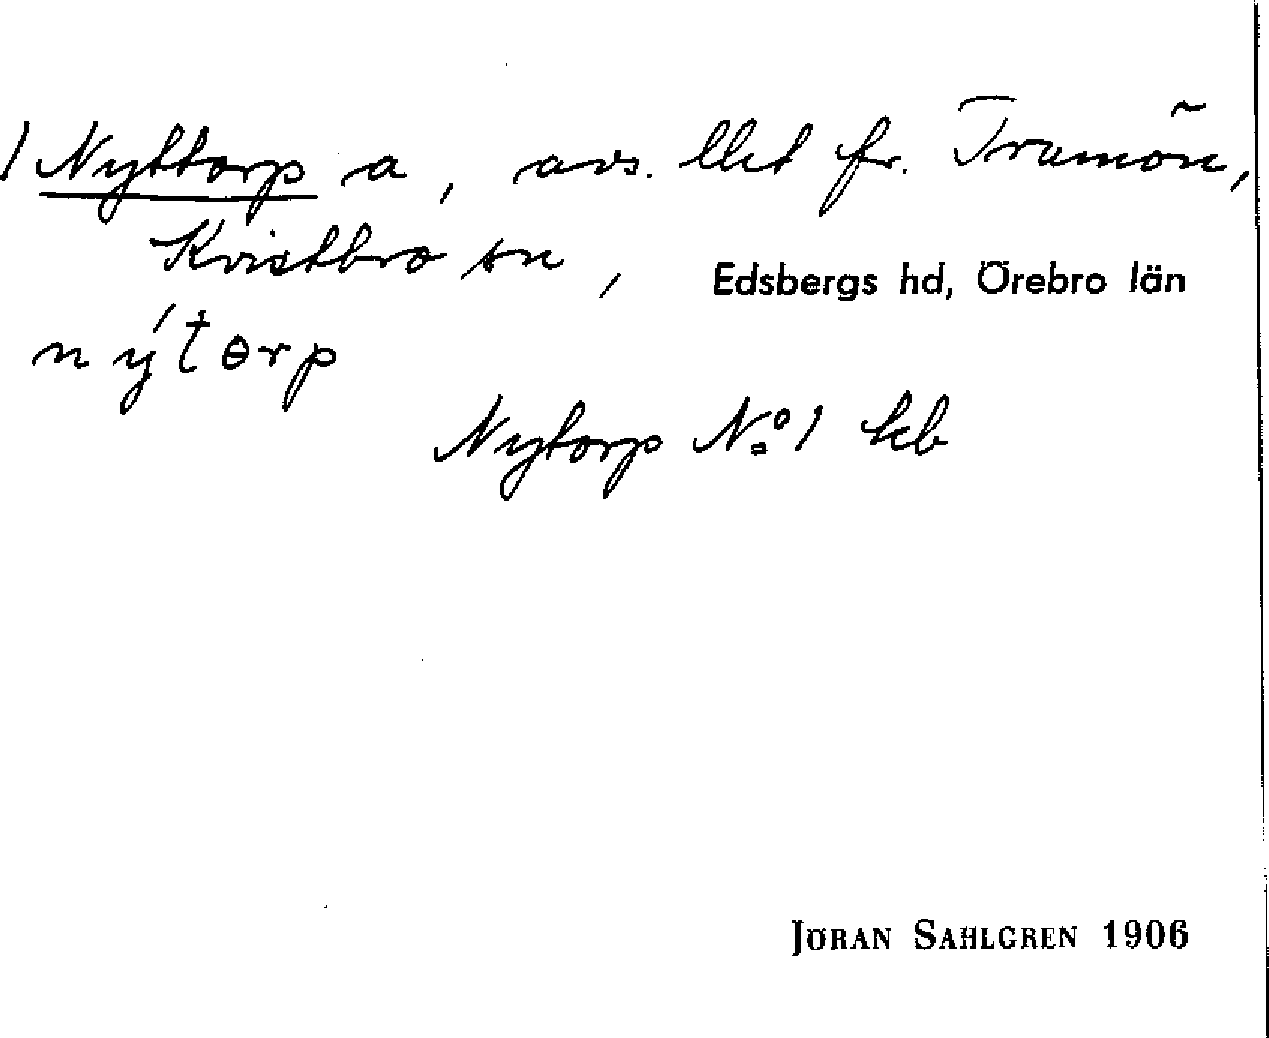 1 Nyttorp a, avs. lht fr. Tramön,
Kvistbro sn, Edsbergs hd, Örebro län
nýtɵrp
Nytorp No 1 kb
JÖRAN SAHLGREN 1906